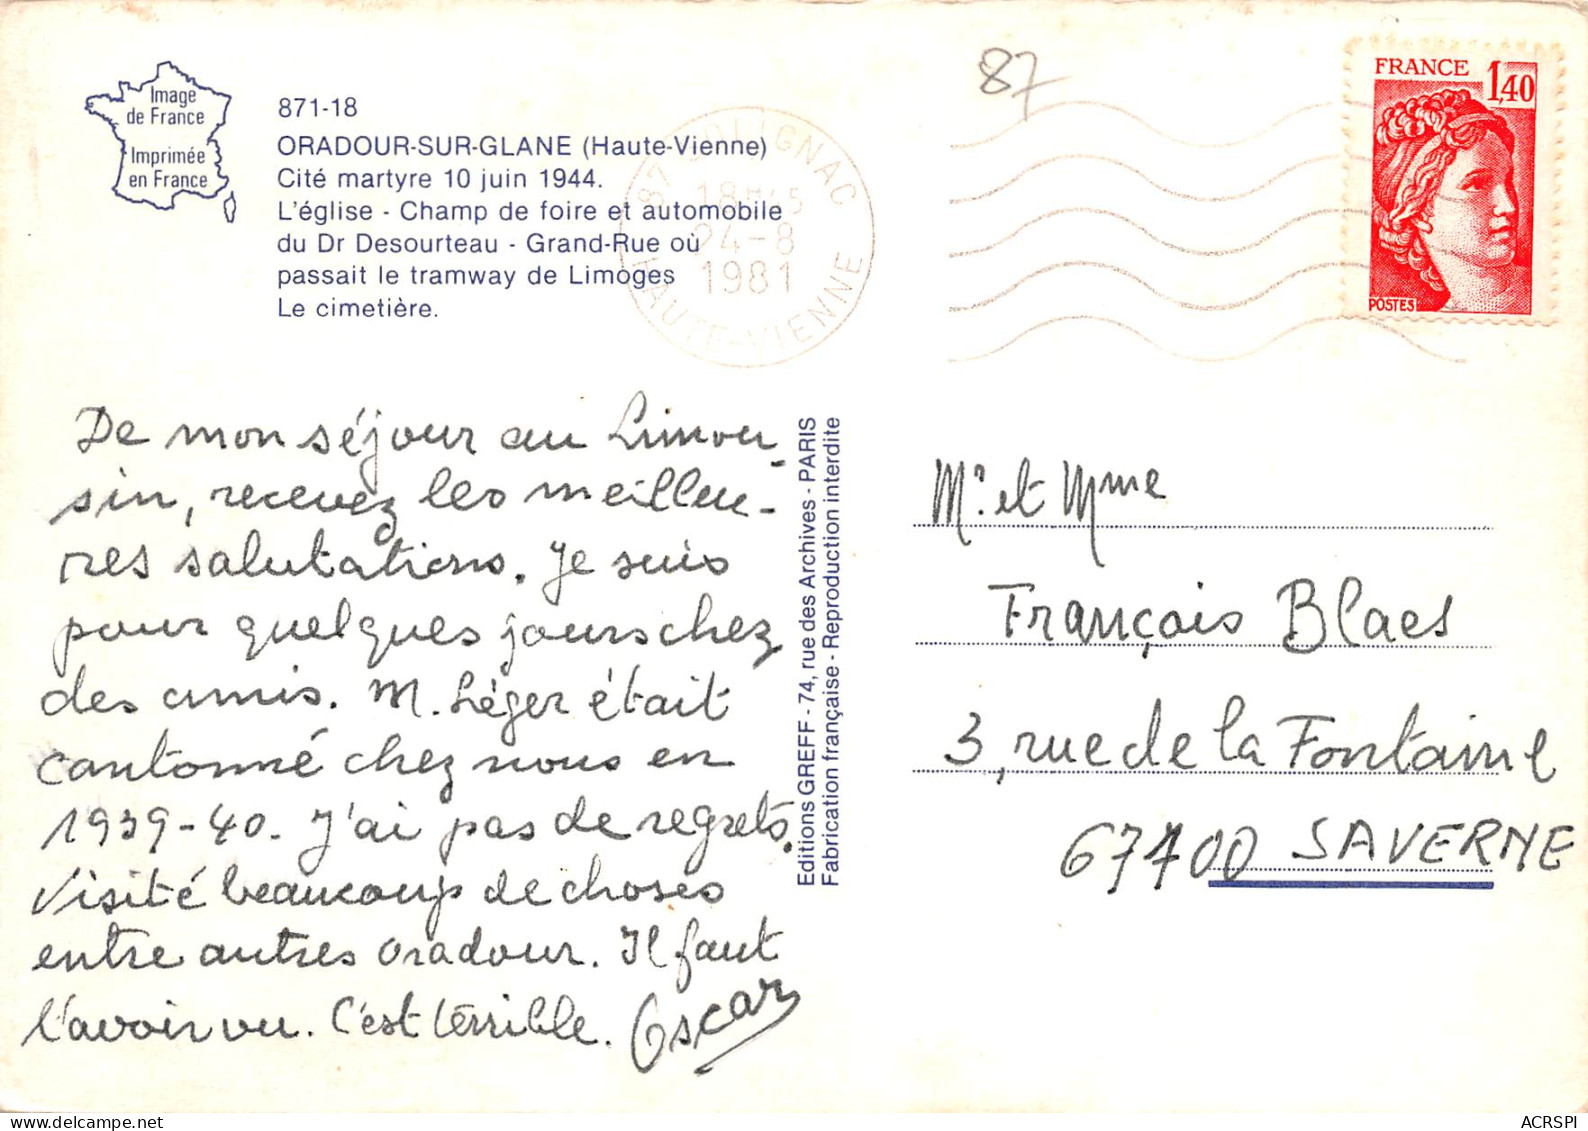 Image
de France
Imprimée
en France
871-18
ORADOUR-SUR-GLANE (Haute-Vienne)
Cité martyre 10 juin 1944.
L'église - Champ de foire et automobile
du Dr Desourteau - Grand-Rue où
passait le tramway de Limoges
Le cimetière.
87 SOLIGNAC
18H45
24-8
1981
HAUTE-VIENNE
87
FRANCE 1,40
POSTES
De mon séjour au Limou-
sin, recevez les meilleu-
res salutations. Je suis
pour quelques jours chez
des amis. M. Léger était
cantonné chez nous en
1939-40. J'ai pas de regrets.
Visité beaucoup de choses
entre autres Oradour. Il faut
l'avoir vu. C'est térrible. Oscar
Editions GREFF - 74, rue des Archives - PARIS
Fabrication française - Reproduction interdite
Mr. et Mme
François Blaes
3, rue de la Fontaine
67700 SAVERNE
ACRSPI